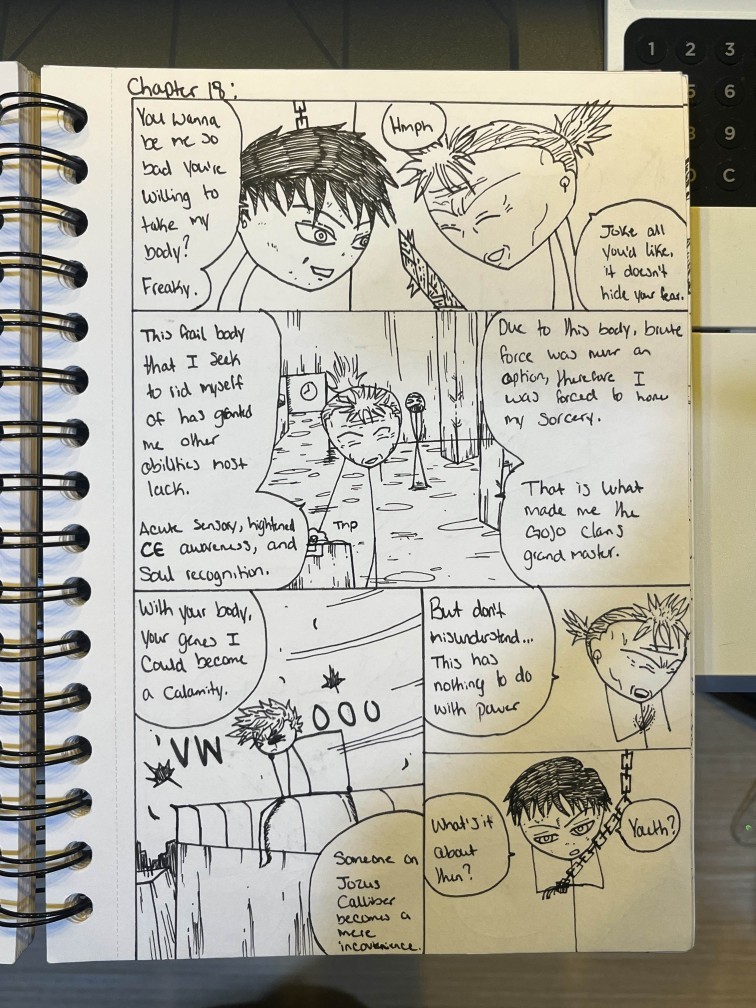 Chapter 18:
You wanna
be me so
bad you're
willing to
take my
body?
Freaky.
Hmph
Joke all
you'd like,
it doesn't
hide your fear.
This frail body
that I seek
to rid myself
of has granted
me other
abilities most
lack.
Acute sensory, hightened
CE awareness, and
Soul recognition.
Due to this body, brute
force was never an
option, therefore I
was forced to hone
my Sorcery.
That is what
made me the
Gojo clans
grand master.
Tnp
With your body,
your genes I
Could become
a Calamity.
VW OOO
Someone on
Jozus
Calliber
becomes a
mere
incovenience.
But don't
misunderstand...
This has
nothing to do
with power
What's it
about
then?
Youth?
1 2 3
5 6
8 9
0 C